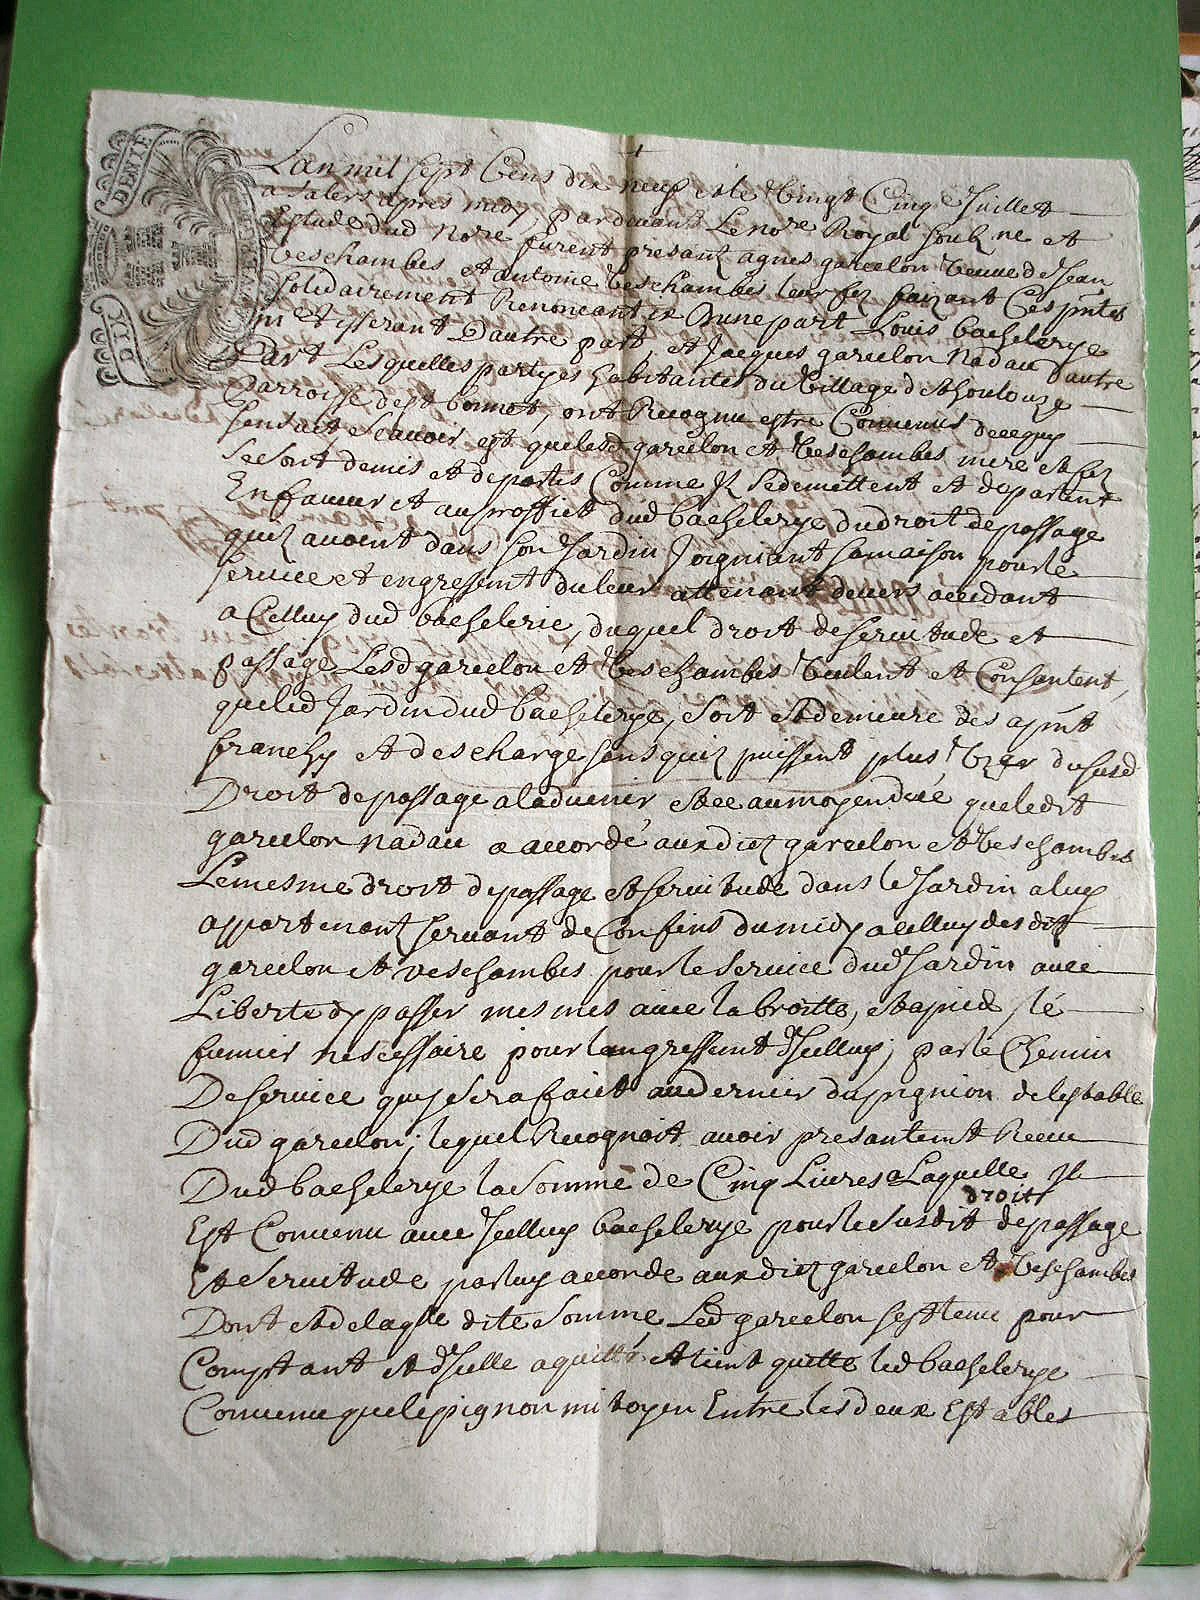 DIX
DENIE
Lan mil sept Cens dix neuf et le Vingt Cinq Juillet
a Salers apres midy, pardevant Le nore Royal soubz.ne et
Estude dud nore furent presant agnes garcelon Veuve de Jean
Veschambes et antoine Veschambes leur filz faizant Ces pntes
Solidairement Renoncant et d'une part Louis bachelerye
tisserant D'autre part, et Jacques garcelon nadau d'autre
Part Lesquelles partyes habitantes du Village de Thoulouze
parroisse de st bonnet, ont Recognu estre Convenus de ce quy
sensuit, Scavoir est que lesd garcelon et Veschambes mere et filz
Se sont demis et departis Comme Ilz Se demettent et departent
En faveur et au proffict dud bachelerye du droit de passage
quilz avoint dans son Jardin Joigniant sa maison pour le
service et engressement du leur attenant devers occident
a Celluy dud bachelerie, duquel droit de servitude et
passage Lesd garcelon et Veschambes Veulent et Consantent,
que led Jardin dud bachelerye, soit et demeure des apnt
franchy et descharge sans quilz puissent plus Vzer du susd
Droit de passage aladvenir et ce aumoyen dece que ledit
garcelon nadau a accordé auxdictz garcelon et Veschambes
Le mesme droit de passage et servitude dans le Jardin a luy
appartenant servant de Confins du midy a celluy desdits
garcelon et Veschambes pour le service dud Jardin avec
Liberté dy passer mesmes avec la broitte, et a pied le
fumier nescessaire pour langressement dIcelluy; par le Chemin
De service quy sera faict au dernier du pignion de lestable
Dud garcelon; lequel Recognoit avoir presantement Receu
Dud bachelerye la Somme de Cinq Livres a Laquelle Il
droit
Est Convenu avec Icelluy bachelerye pour le susdit de passage
Et Servitude par luy accorde auxdictz garcelon et Veschambes
Dont et de laquelle dite Somme Led garcelon sest tenu pour
Comptant et dIcelle a quitté et tient quitte led bachelerye
Convenu que le pignon mitoyen Entre les deux Estables